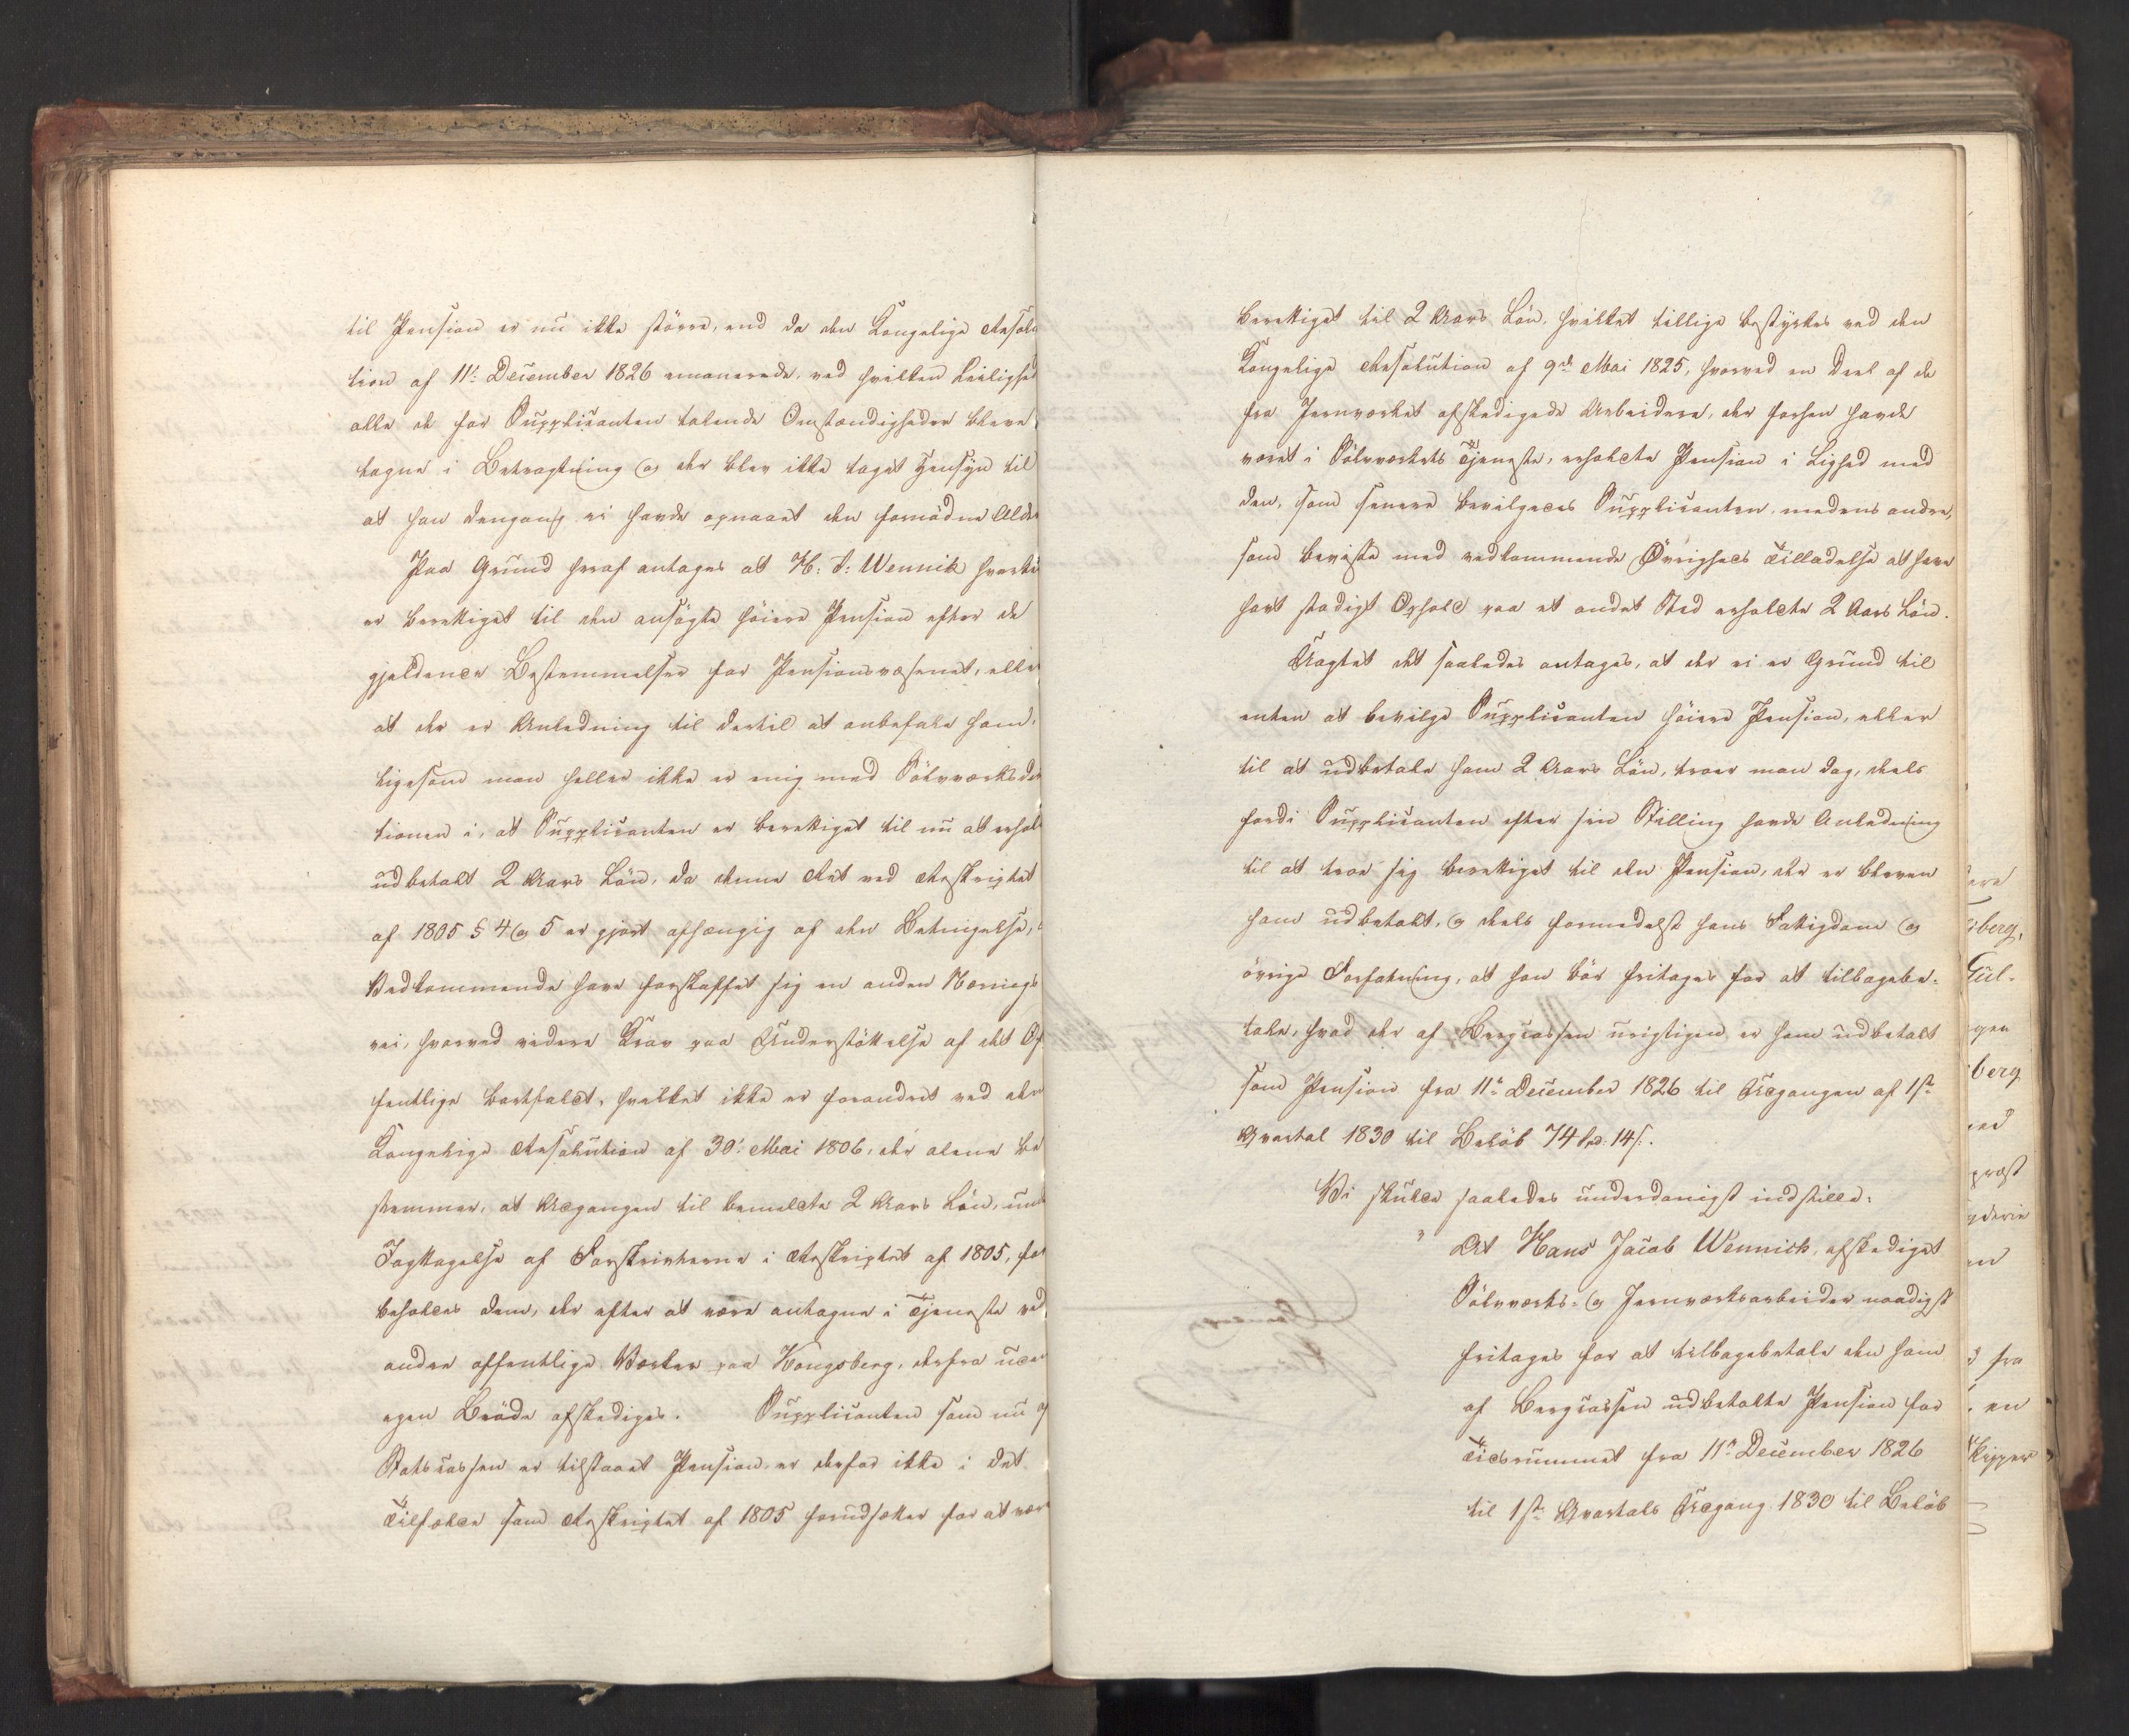 til Pension er nu ikke större, end da den Kongelige Resolu
tion af 11te December 1826 emanerede, ved hvilken Leilighed
alle de for Supplicanten talende Omstændigheder bleve
tagne i Betragtning og der blev ikke taget Hensyn til
at han dengang ei havde opnaaet den fornödne Alder
Paa Grund heraf antages at H: J: Wennik hverken
er berettiget til den ansögte höiere Pension efter de
gjeldende Bestemmelser for Pensionsvæsenet, eller
at der er Anledning til dertil at anbefale ham,
ligesom man heller ikke er enig med Sölvværksdirec
tionen i, at Supplicanten er berettiget til nu at erholde
udbetalt 2 Aars Lön, da denne Ret ved Rescriptet
af 1805 § 4 og 5 er gjort afhængig af den Betingelse,
Vedkommende have forskaffet sig en anden Nærings
vei, hvorved videre Krav paa Understöttelse af det Of
fentlige bortfaldt, hvilket ikke er forandret ved den
Kongelige Resolution af 30te Mai 1806, der alene be
stemmer, at Adgangen til bemeldte 2 Aars Lön, under
Iagttagelse af Forskrivterne i Rescriptet af 1805, for
beholdes dem, der efter at være antagne i Tjeneste ved
andre offentlige Værker paa Kongsberg, derfra uden
egen Bröde afskediges. Supplicanten som nu af
Statscassen er tilstaaet Pension er derfor ikke i det
Tilfælde som Rescriptet af 1805 forudsætter for at være
berettiget til 2 Aars Lön, hvilket tillige bestyrkes ved den
Kongelige Resolution af 9de Mai 1825, hvorved en Deel af de
fra Jernværket afskedigede Arbeidere, der forhen havde
været i Sölvværkets Tjeneste, erholdte Pension i Lighed med
den, som senere bevilgedes Supplicanten, medens andre,
som beviste med vedkommende Øvrigheds Tilladelse at have
havt stadigt Ophold paa et andet Sted erholdte 2 Aars Lön.
Uagtet det saaledes antages, at der ei er Grund til
enten at bevilge Supplicanten höiere Pension, eller
til at udbetale ham 2 Aars Lön, troer man dog, deels
fordi Supplicanten efter sin Stilling havde Anledning
til at troe sig berettiget til den Pension, der er bleven
ham udbetalt, og deels formedelst hans Fattigdom og
övrige Forfatning, at han bör fritages for at tilbagebe-
tale, hvad der af Bergcassen urigtigen er ham udbetalt
som Pension fra 11te December 1826 til Udgangen af 1ste
Qvartal 1830 til Belöb 74 Spd: 14 s.
Vi skulde saaledes underdanigst indstille:
" At Hans Jacob Wennick, afskediget
Sölvværks- og Jernværksarbeider naadigst
fritages for at tilbagebetale den ham
af Bergcassen udbetalte Pension for
Tidsrummet fra 11te December 1826
til 1ste Qvartals Udgang 1830 til Belöb